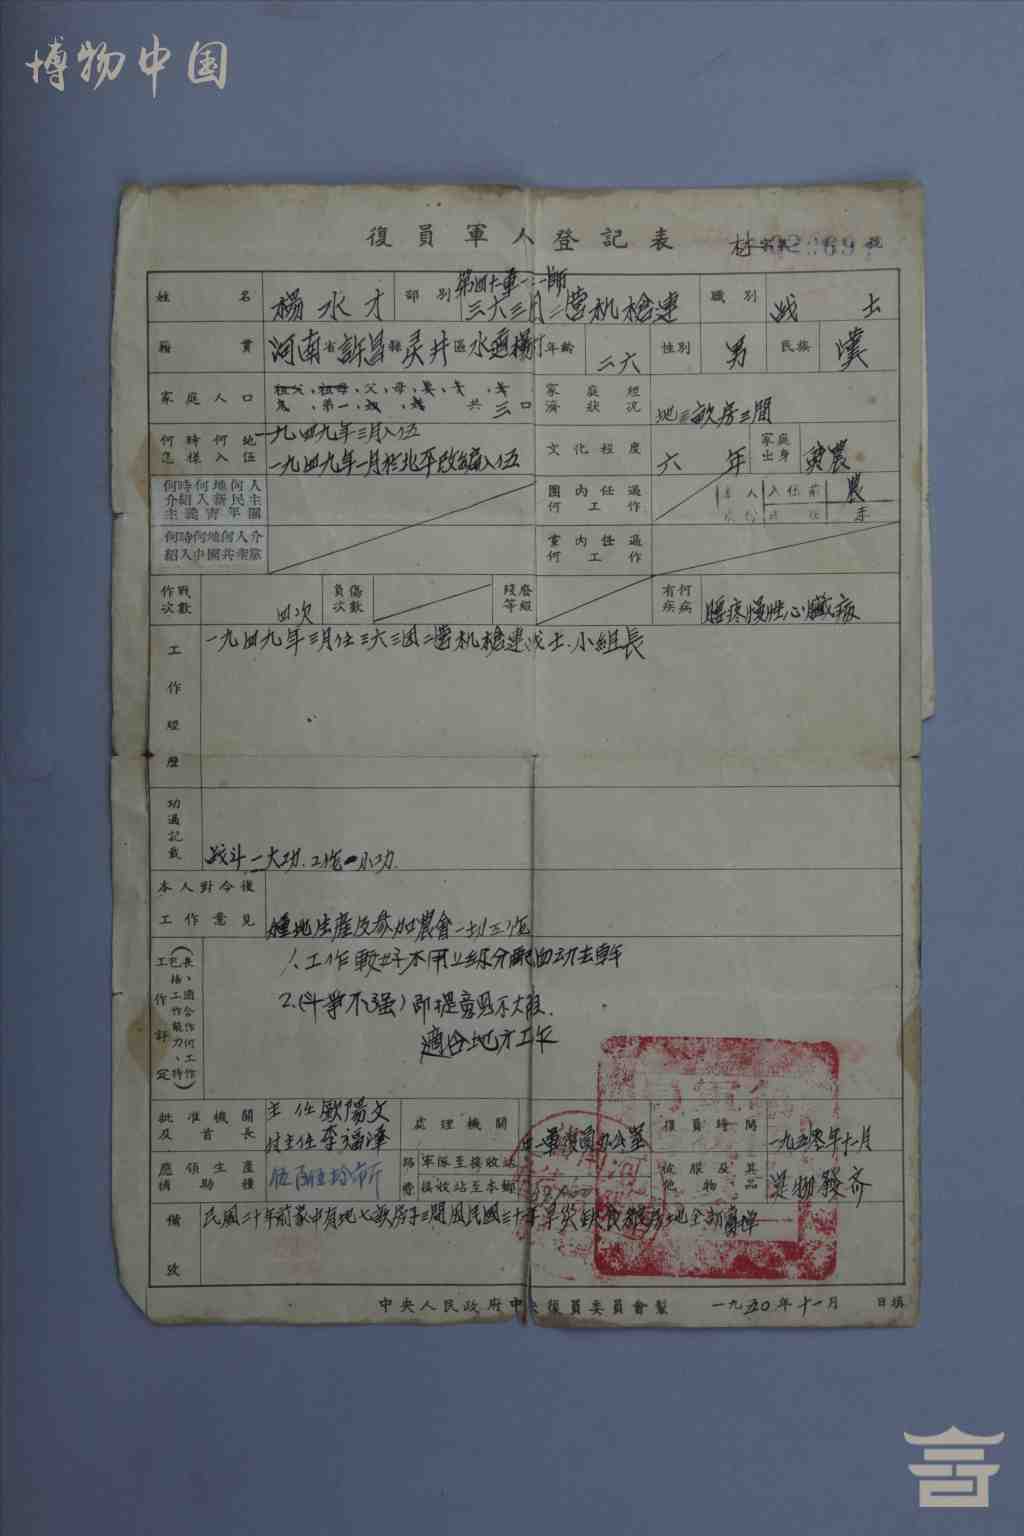 博物中国
復員軍人登記表 字第 02369 號
姓名 楊水才 部別 第四十軍一二一師 三六三团二营机槍連 職別 战士
籍貫 河南省許昌縣灵井區水道楊村 年齡 二六 性別 男 民族 漢
家庭人口 祖父、祖母、父、母、妻、子、女 共三口 家庭經濟狀況 地三畝房三間
何時何地怎樣入伍 一九四九年三月入伍
一九四九年一月於北平改編入伍 文化程度 六年 家庭出身 貧農
何時何地何人介紹入新民主主義青年團 團內任過何工作 本人成份 入伍前 農
何時何地何人介紹入中國共產黨 黨內任過何工作
作戰次數 四次 負傷次數 殘廢等級 有何疾病 腿疼慢性心臟病
工作經歷 一九四九年三月任三六三团二营机槍連战士.小組長
功過記載 战斗一大功.工作一小功.
本人對今後工作意見 種地生產及參加農會一切工作
工作評定(包括工作能力、特長、適合作何工作)
1.工作較好不用上级分配自动去幹
2.(斗爭不强)即提意見不大胆.
適合地方工作
批准機關及首長 主任歐陽文
付主任李福澤 處理機關 軍復員办公室 復員時間 一九五零年十一月
應領生產補助糧 伍百伍拾市斤 路費 軍隊至接收站 接收站至本鄉 被服及其他物品 是物發齐
備攷 民國二十年前家中有地七畝房子三間風民國三十年旱災缺食
中央人民政府中央復員委員會製 一九五〇年十一月 日填